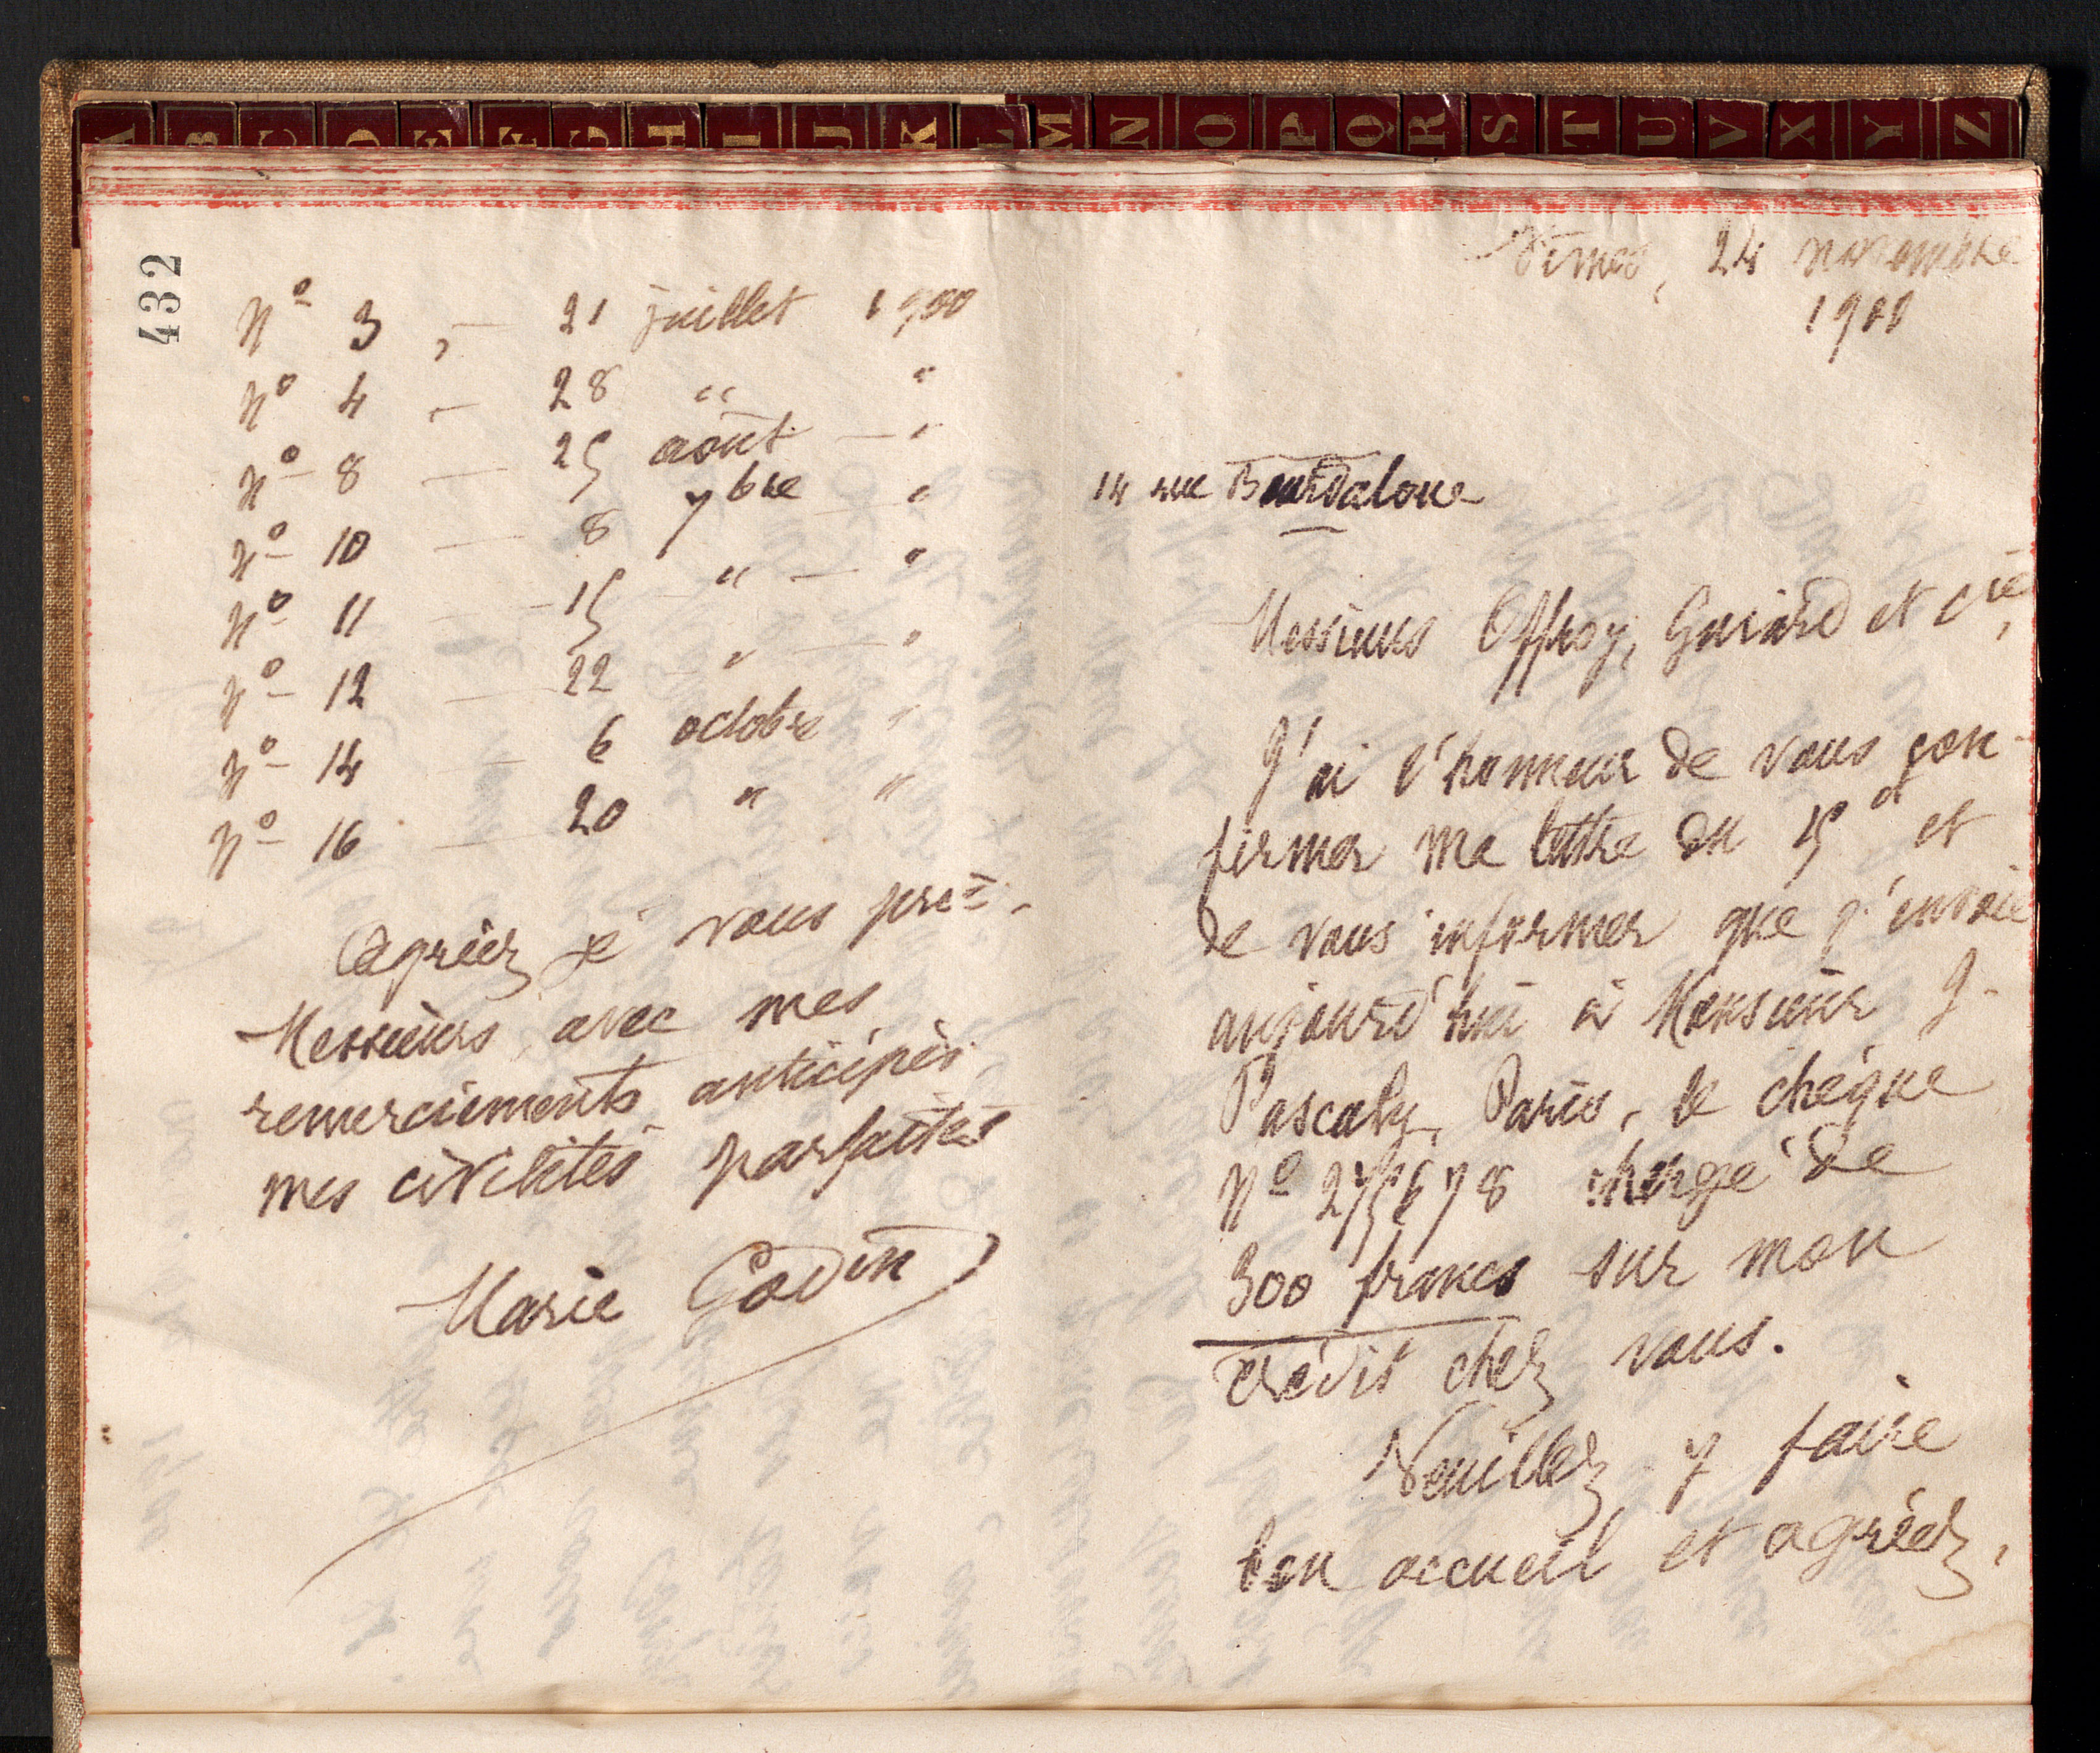 A B C D E F G H I J K L M N O P Q R S T U V X Y Z
432
Nº 3, — 21 juillet 1900
Nº 4 — 28 " "
Nº 8 — 25 août — "
Nº 10 — 8 7bre — "
Nº 11 — 15 " — "
Nº 12 — 22 " — "
Nº 14 — 6 octobre "
Nº 16 — 20 " "
Agréez je vous prie
Messieurs, avec mes
remerciements anticipés,
mes civilités parfaites
Marie Godin
Nîmes, 24 novembre
1900
14 rue Bourdaloue
Messieurs Offroy, Guiard et Cie,
J'ai l'honneur de vous con-
firmer ma lettre du 15 et
de vous informer que j'envoie
aujourd'hui à Monsieur J.
Pascaly, Paris, le chèque
Nº 275678 chargé de
300 francs sur mon
crédit chez vous.
Veuillez y faire
bon accueil et agréez,